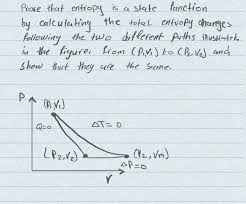 Prove that entropy is a state function
by calculating the total entropy changes
following the two different paths illustrated
in the figure, from (P,V1) to (P2,V2) and
show that they are the same.
P
(P,V1)
Q=0
ΔT=0
(P2,V2)
(P2,Vm)
ΔP=0
V